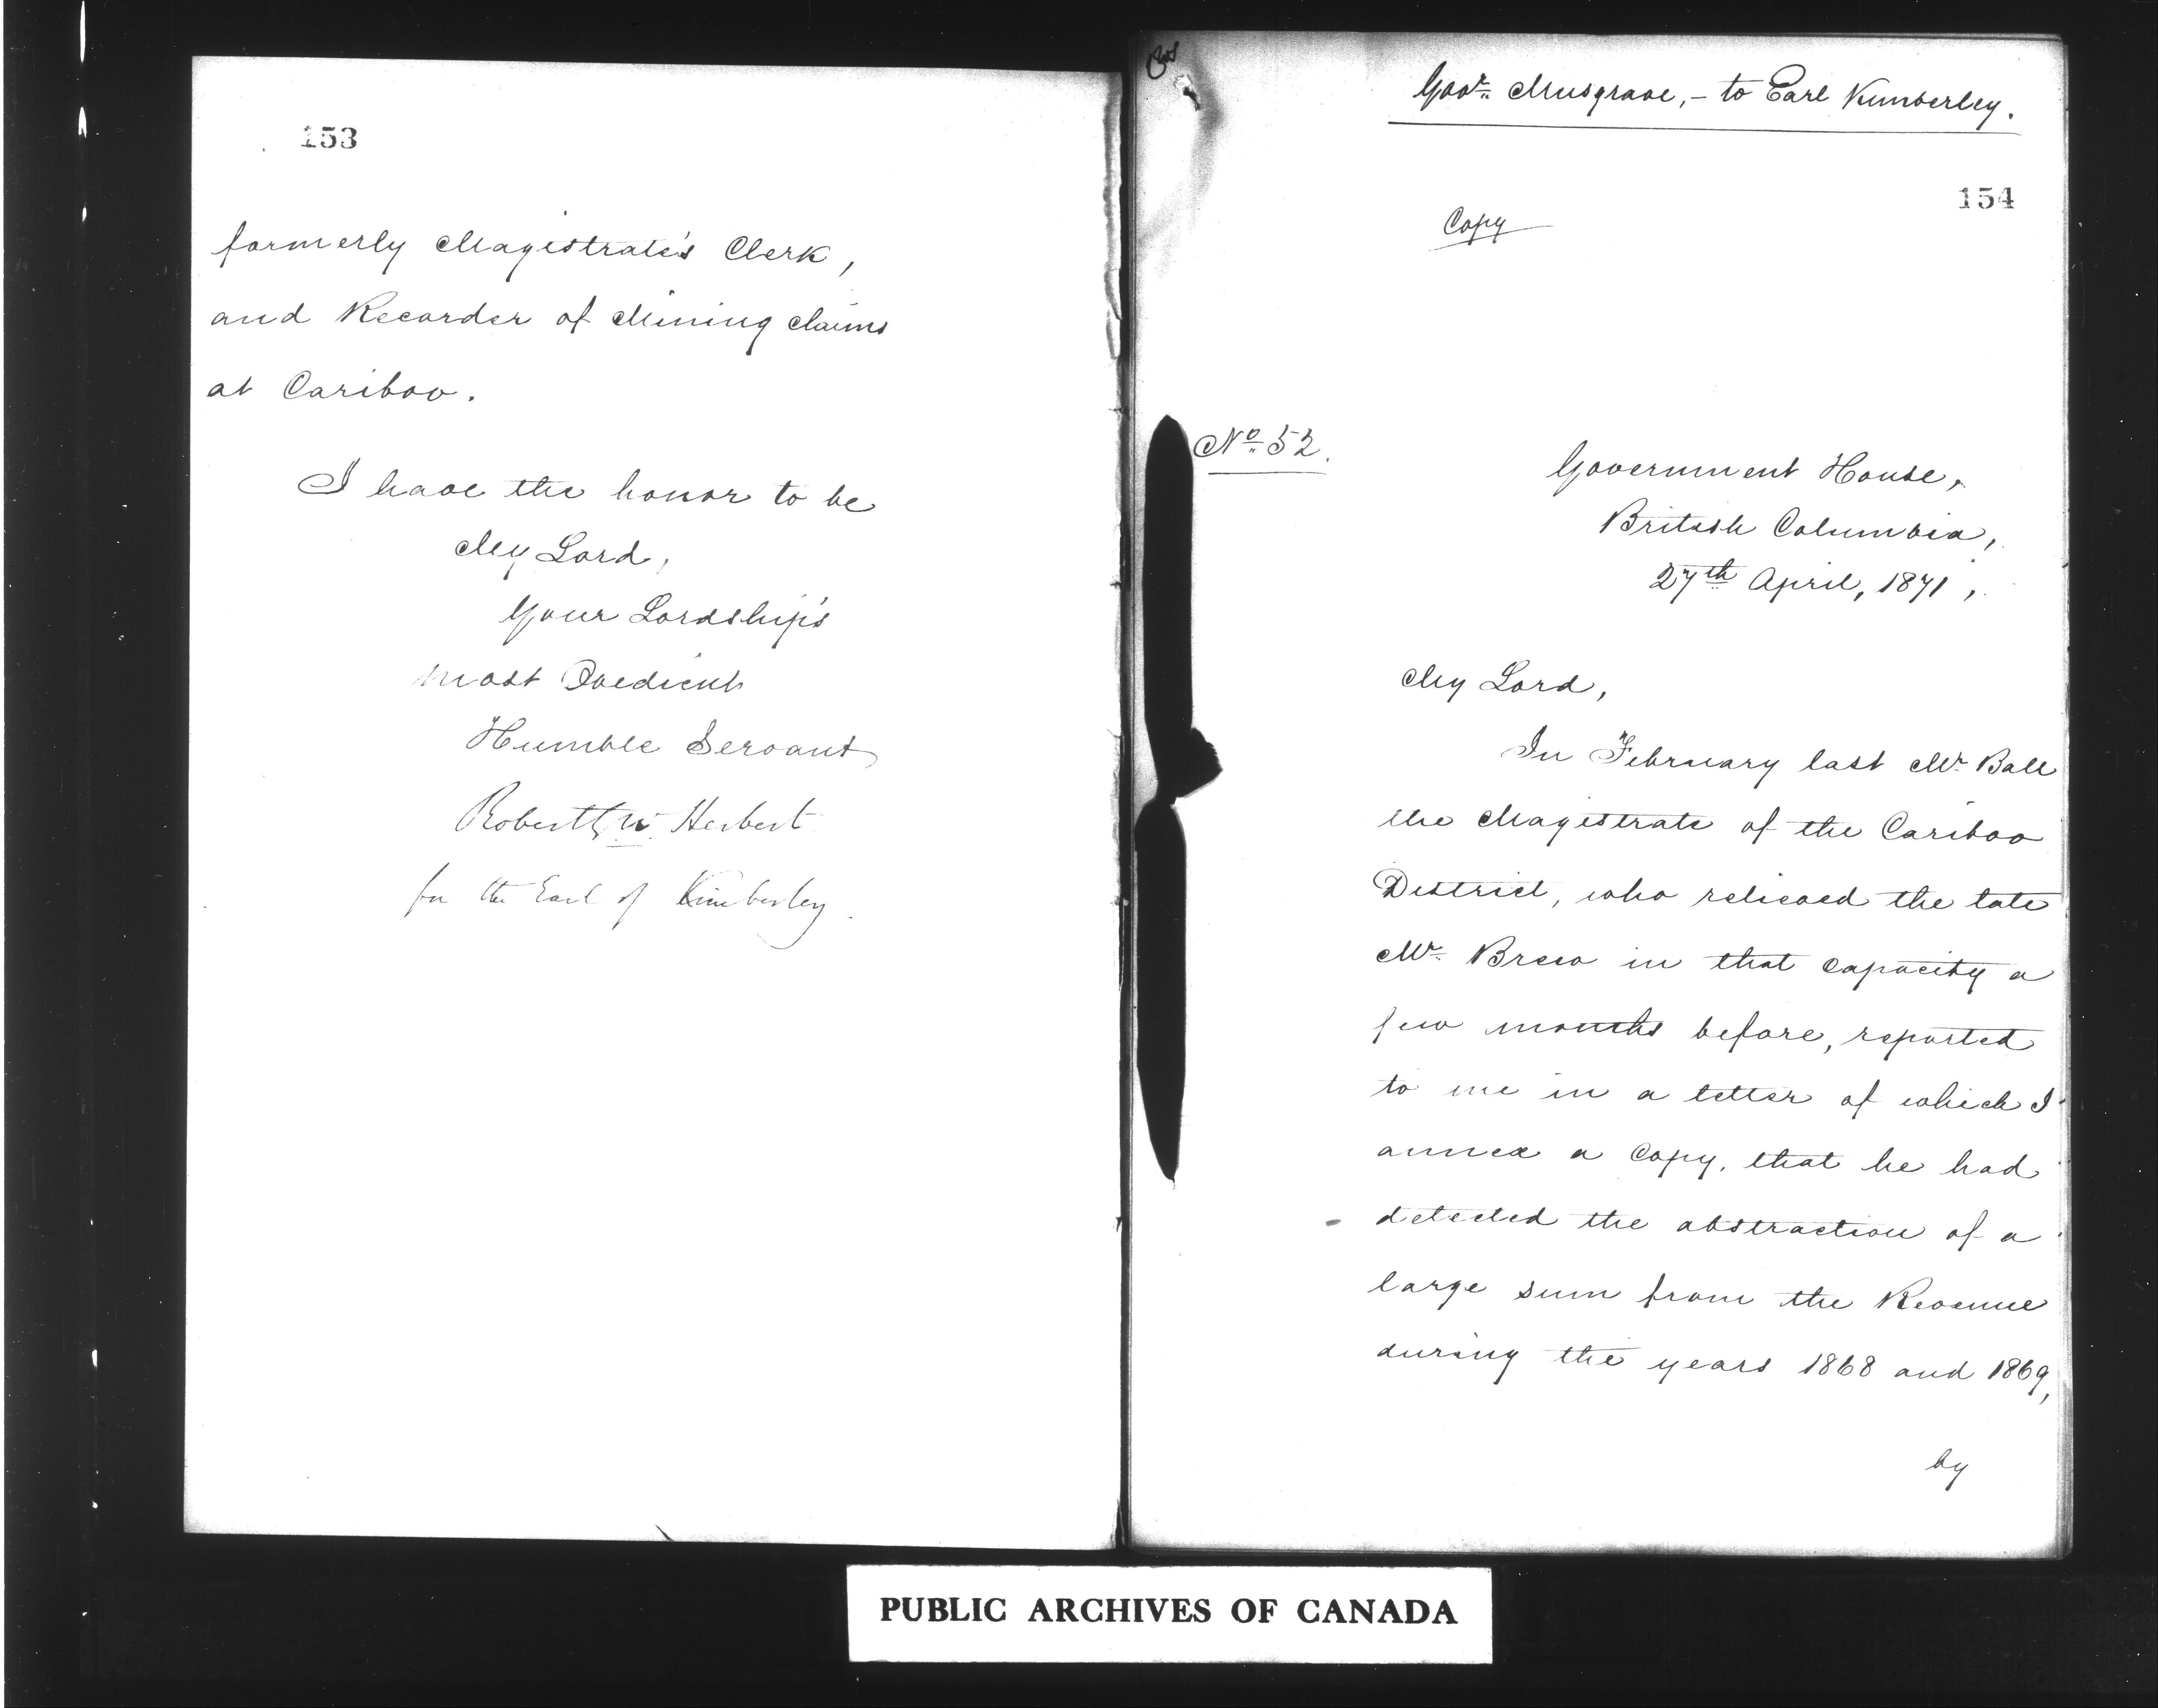 153
formerly Magistrate's Clerk,
and Recorder of Mining Claims
at Cariboo.
I have the honor to be
My Lord,
Your Lordship's
most Obedient
Humble Servant
Robert G. W. Herbert
for the Earl of Kimberley.
Govr. Musgrave, - to Earl Kimberley.
154
Copy
No. 52.
Government House,
British Columbia,
27th April, 1871,
My Lord,
In February last Mr. Ball
the Magistrate of the Cariboo
District, who relieved the late
Mr. Brew in that capacity a
few months before, reported
to me in a letter of which I
annex a copy, that he had
detected the abstraction of a
large sum from the Revenue
during the years 1868 and 1869,
by
PUBLIC ARCHIVES OF CANADA